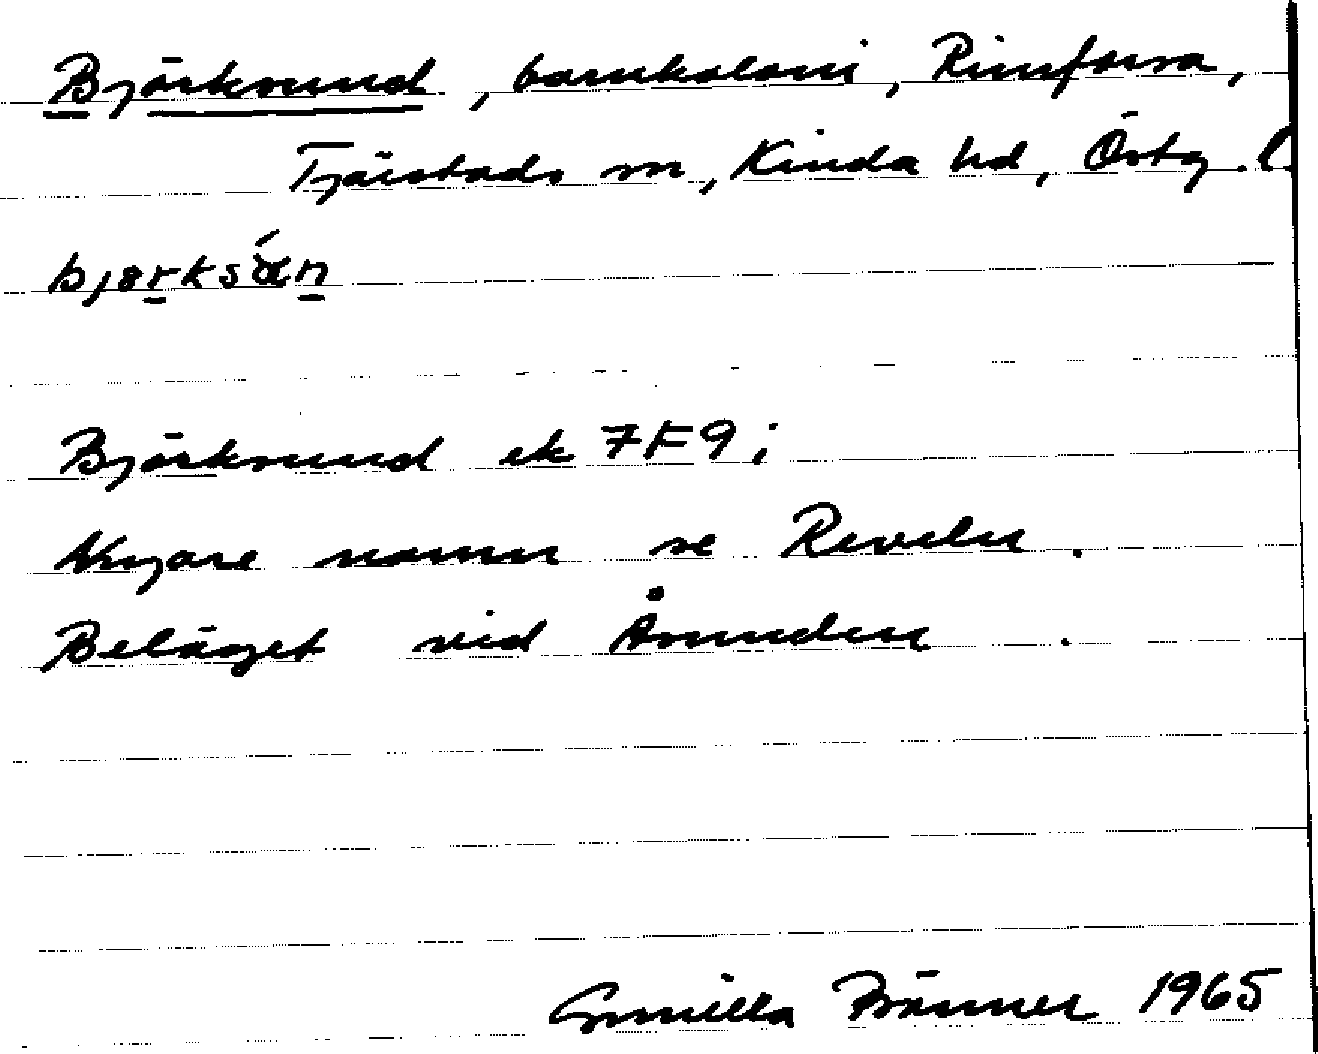 Björksund, barnkoloni, Rimforsa,
Tjärstads sn, Kinda hd, Östg. l.
bjørksən
Björksund ek 7F9i
Nyare namn se Reveln.
Beläget vid Åsunden.
Gunilla Bränner 1965